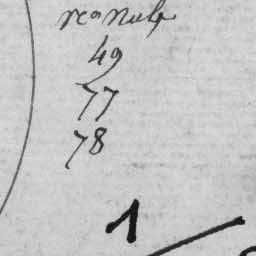 49
77
78
1